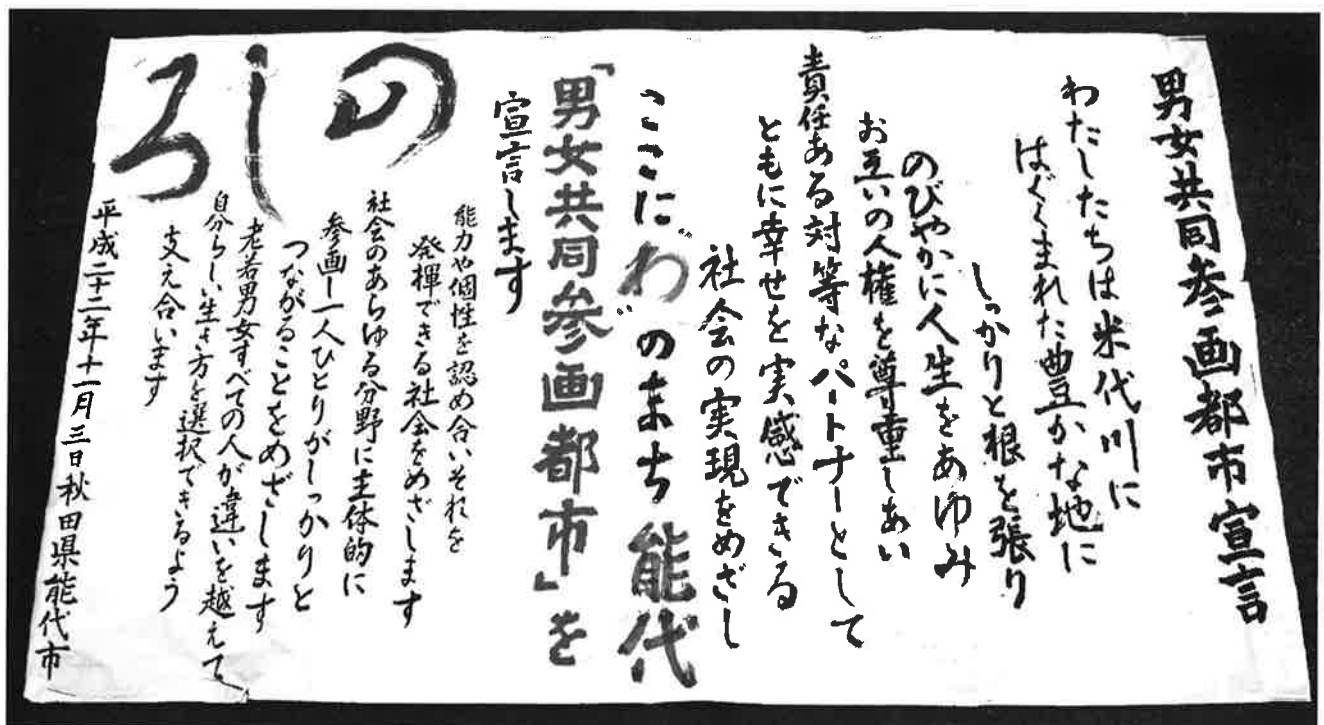 男女共同参画都市宣言
わたしたちは米代川に
はぐくまれた豊かな地に
しっかりと根を張り
のびやかに人生をあゆみ
お互いの人権を尊重しあい
責任ある対等なパートナーとして
ともに幸せを実感できる
社会の実現をめざし
ここに“わ”のまち能代
「男女共同参画都市」を
宣言します
のしろ
能力や個性を認め合いそれを
発揮できる社会をめざします
社会のあらゆる分野に主体的に
参画し一人ひとりがしっかりと
つながることをめざします
老若男女すべての人が違いを越えて、
自分らしい生き方を選択できるよう
支え合います
平成二十二年十一月三日秋田県能代市